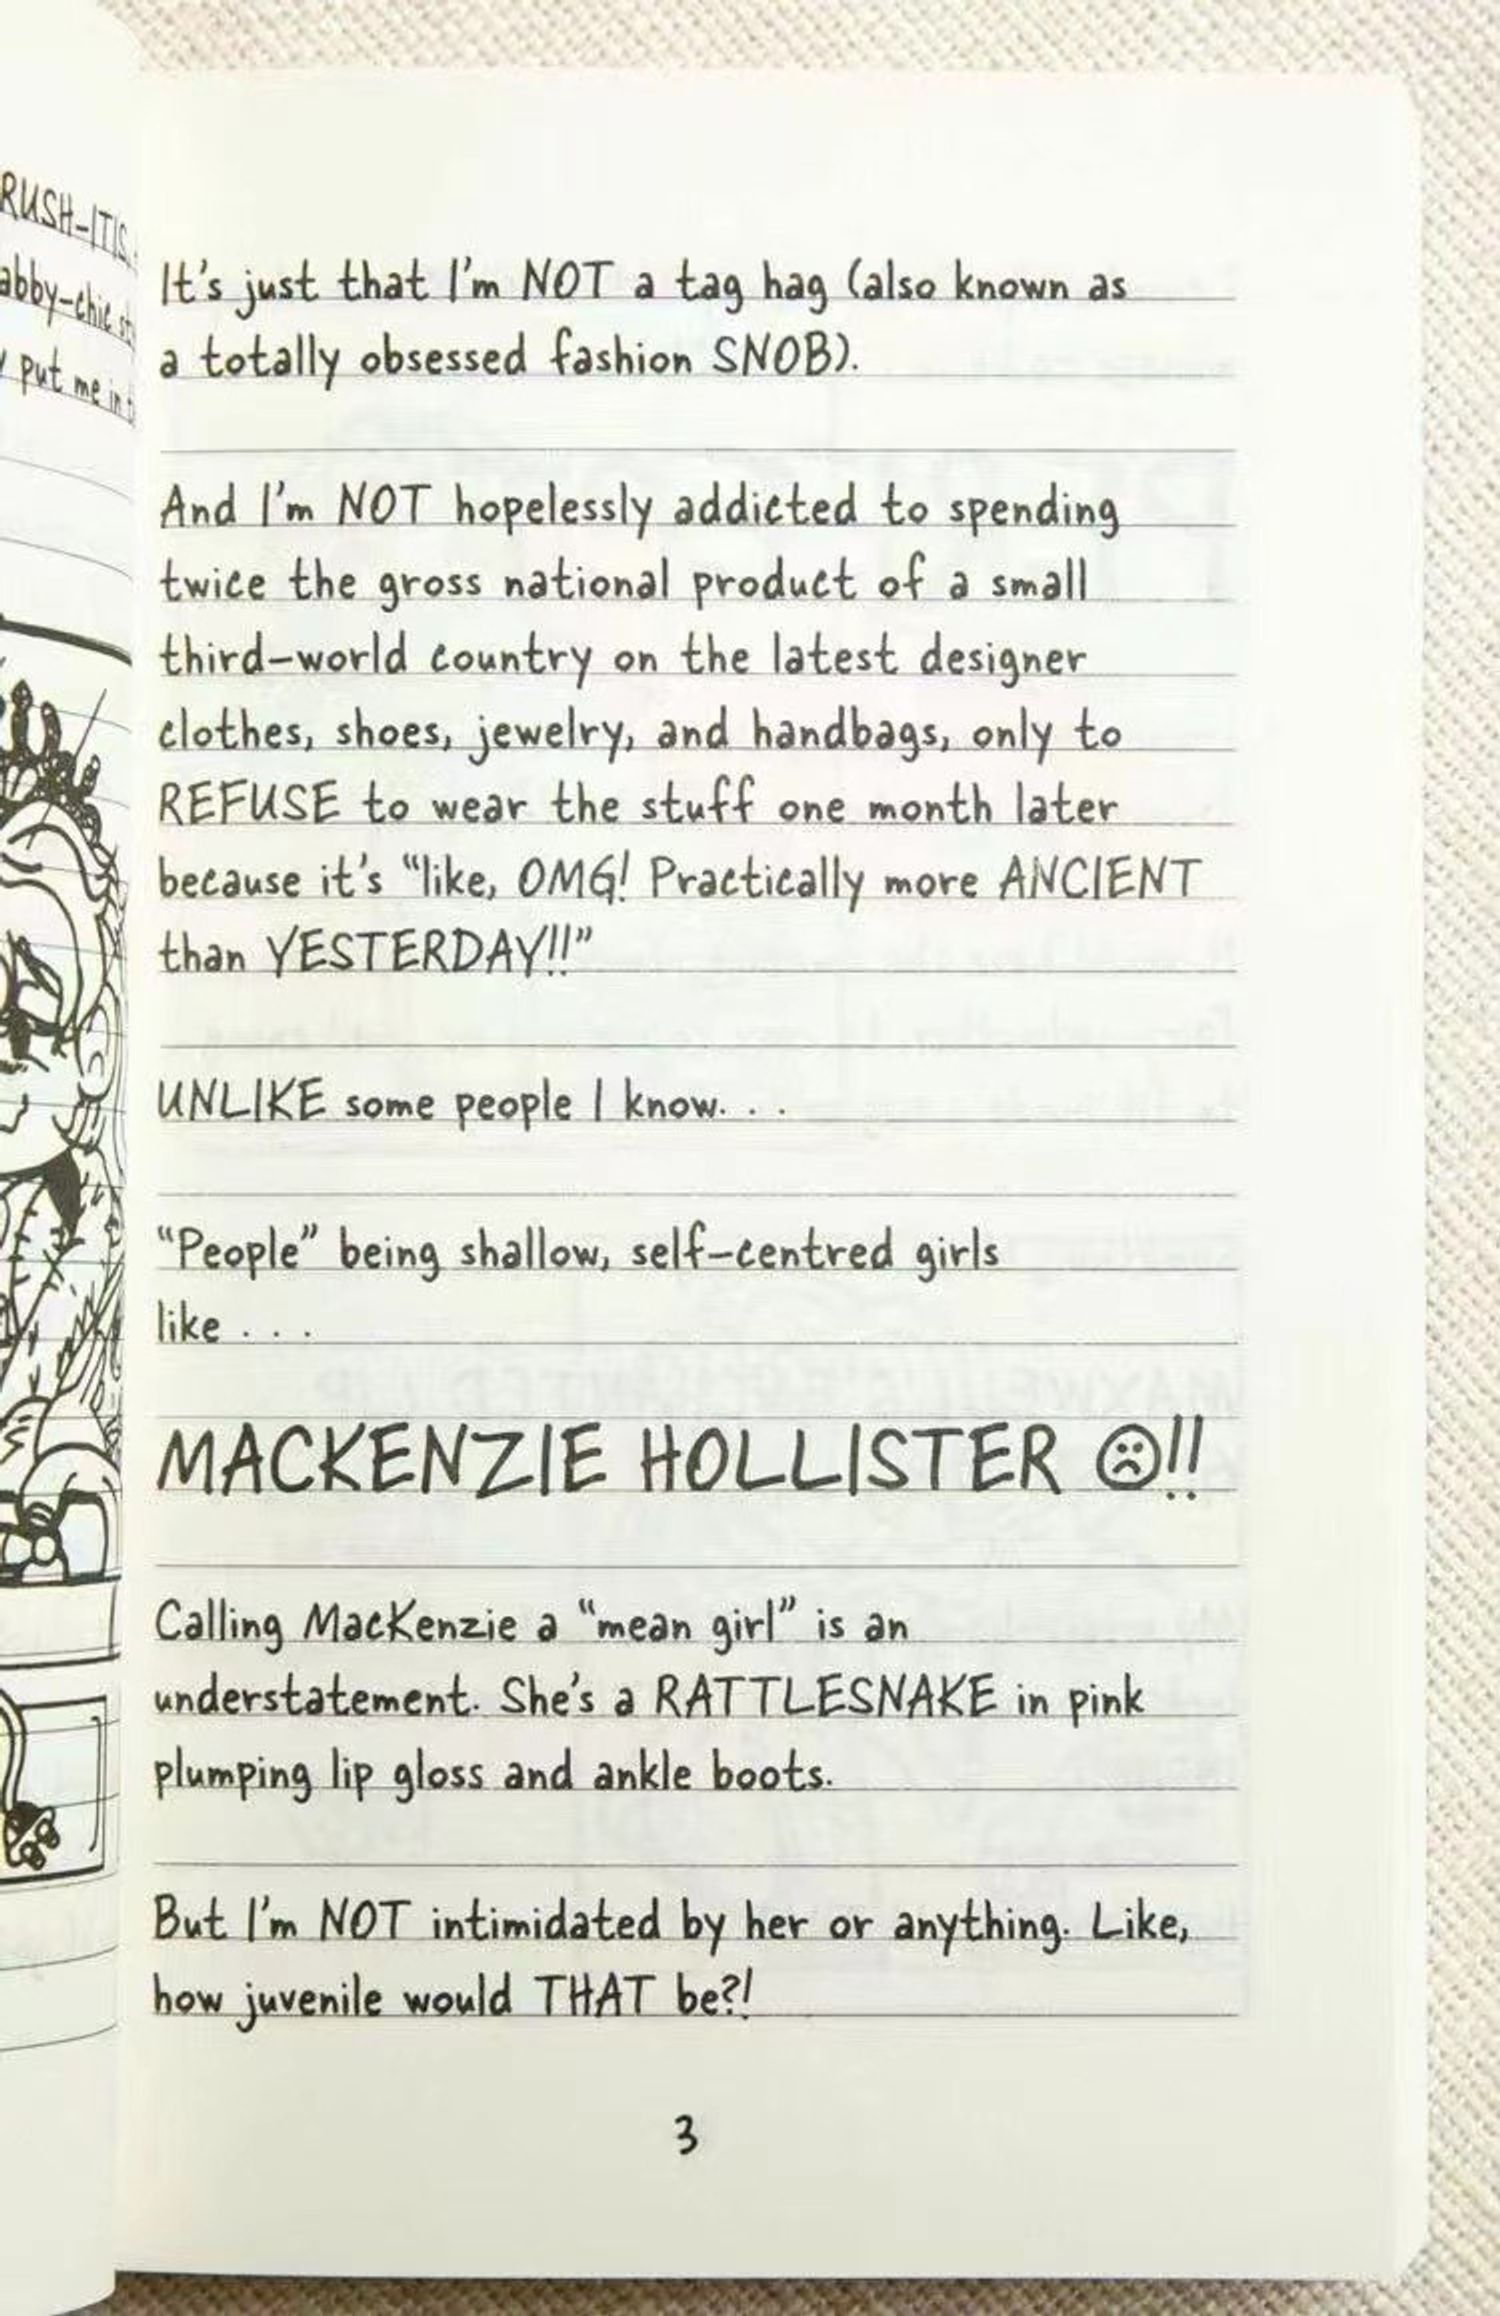 RUSH-ITIS.
abby-chic
put me in
It's just that I'm NOT a tag hag (also known as
a totally obsessed fashion SNOB).
And I'm NOT hopelessly addicted to spending
twice the gross national product of a small
third-world country on the latest designer
clothes, shoes, jewelry, and handbags, only to
REFUSE to wear the stuff one month later
because it's “like, OMG! Practically more ANCIENT
than YESTERDAY!!”
UNLIKE some people I know. . .
“People” being shallow, self-centred girls
like . . .
MACKENZIE HOLLISTER ☹!!
Calling MacKenzie a “mean girl” is an
understatement. She's a RATTLESNAKE in pink
plumping lip gloss and ankle boots.
But I'm NOT intimidated by her or anything. Like,
how juvenile would THAT be?!
3